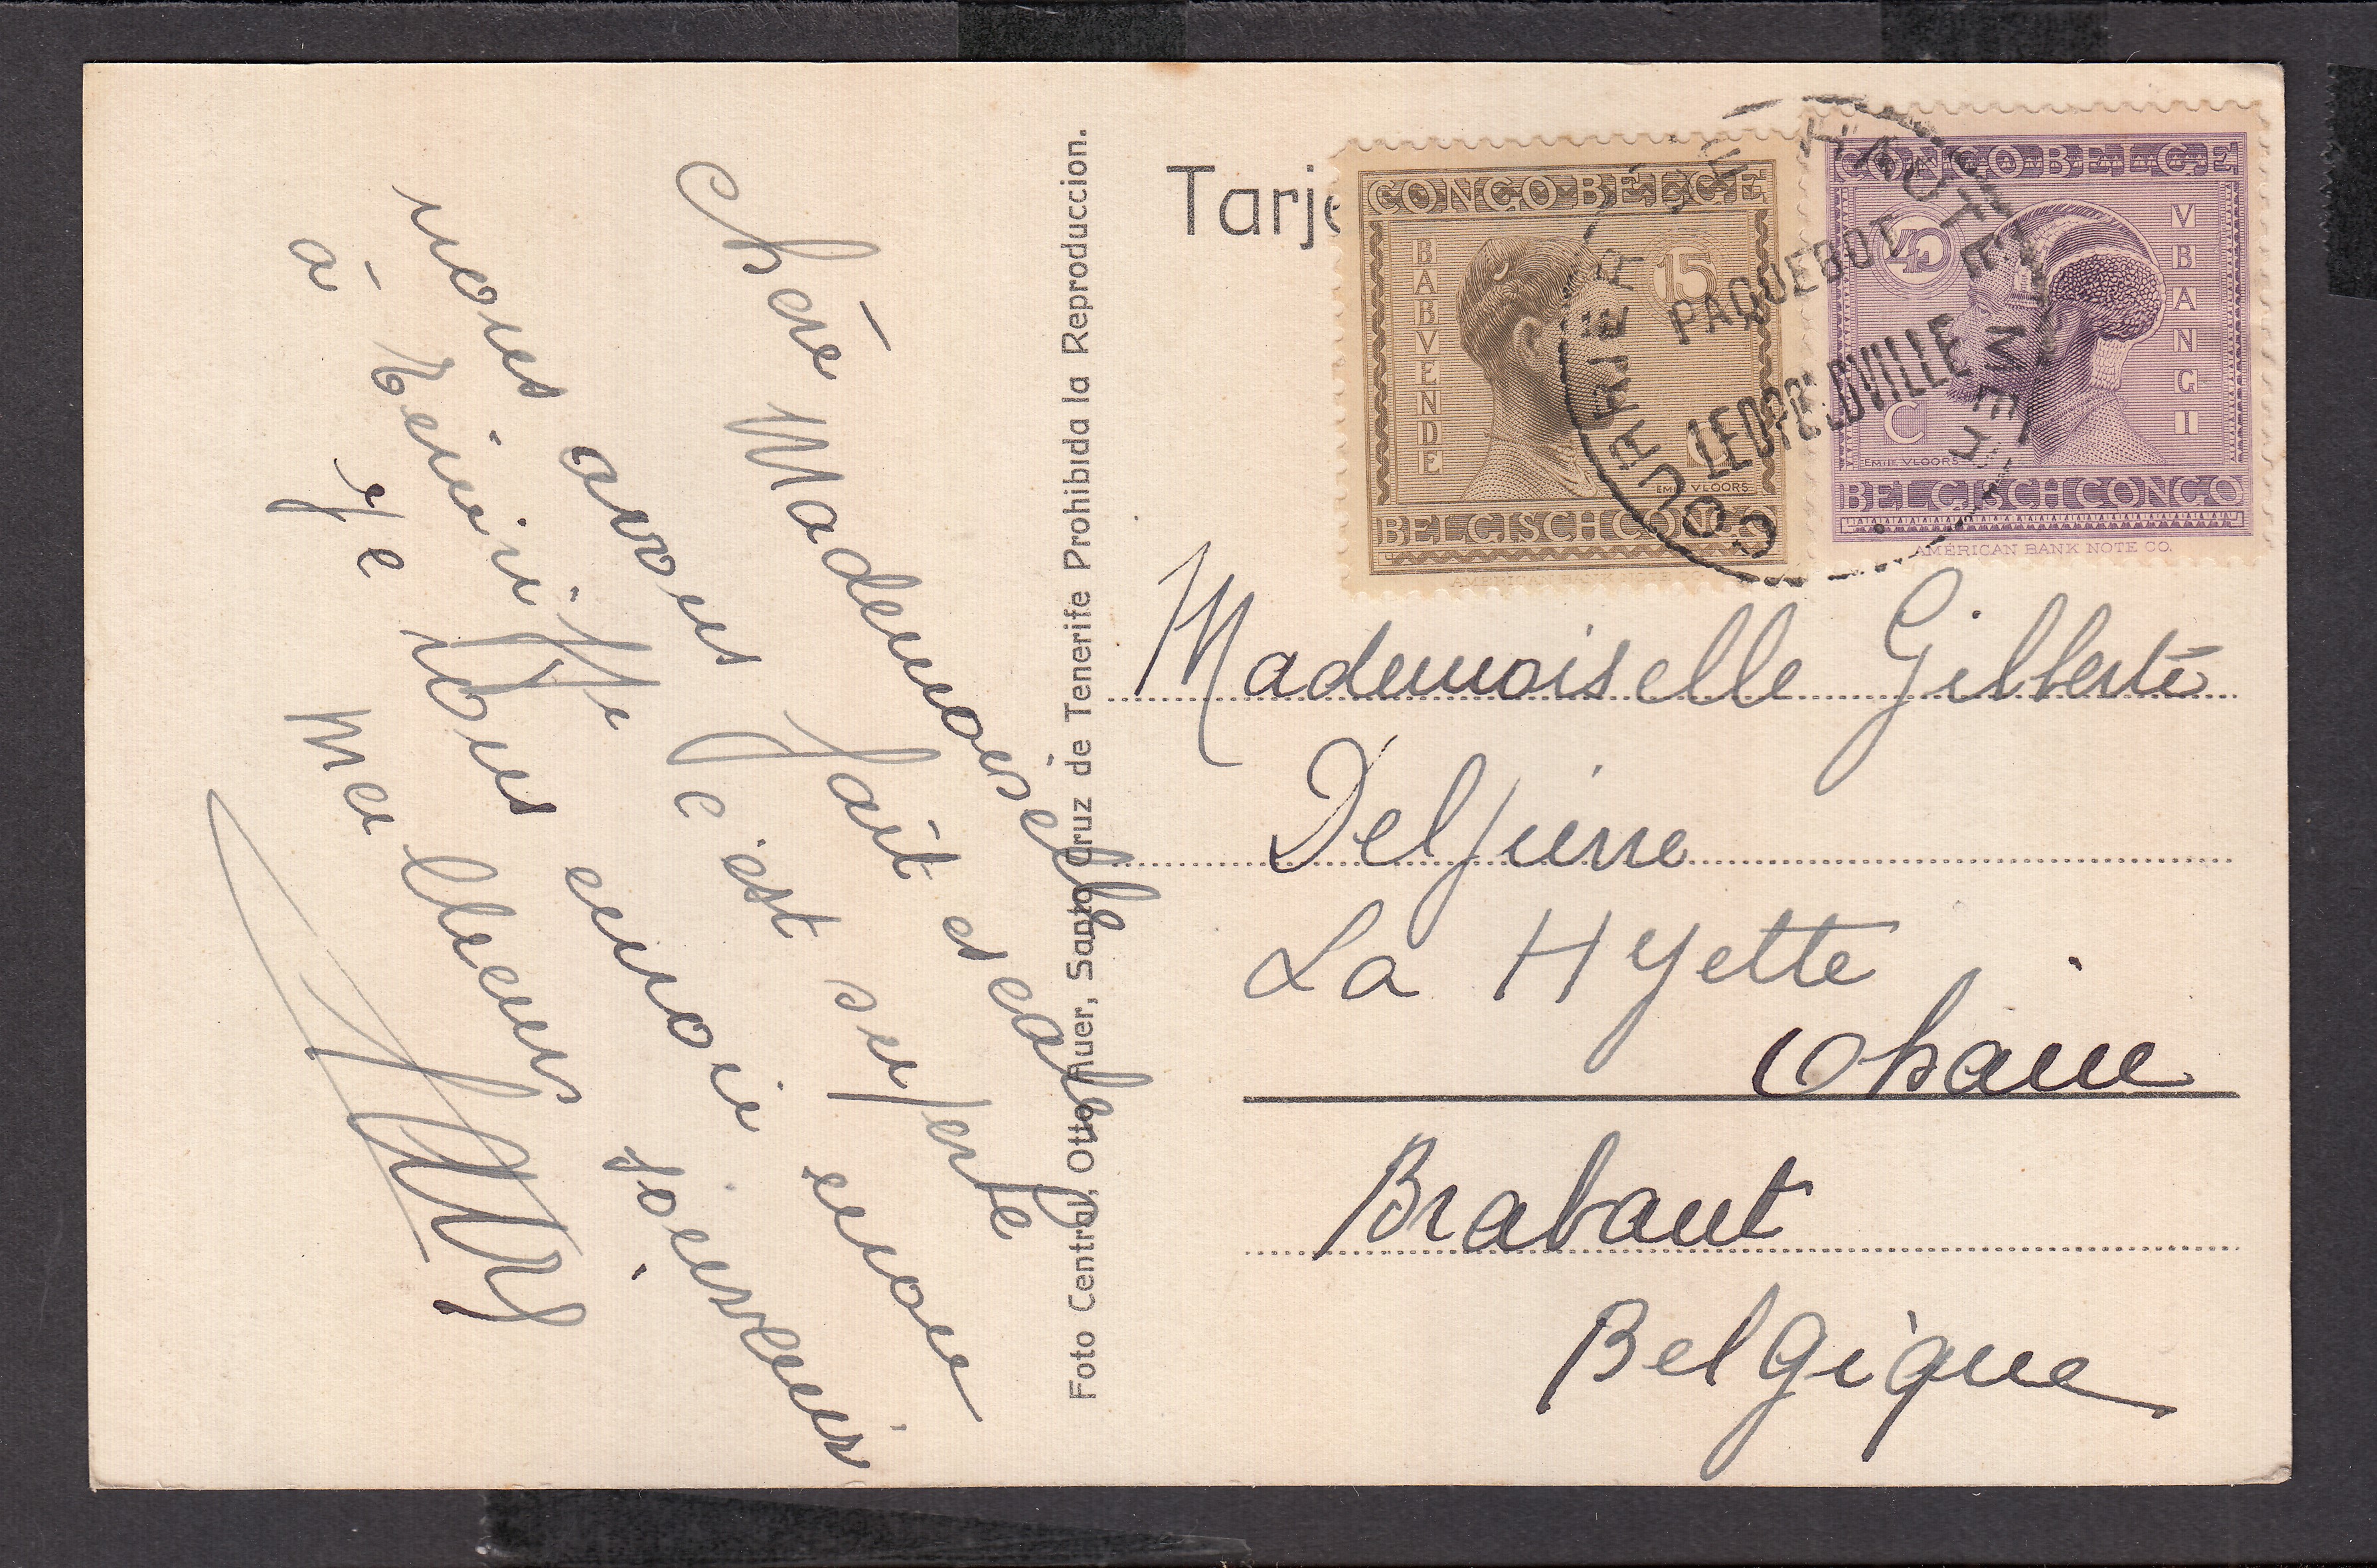 Chère Mademoiselle
nous avons fait escale
à Ténériffe C'est superbe
Je vous envoie mon
Meilleurs souvenir
Foto Central, Otto Auer, Santa Cruz de Tenerife Prohibida la Reproduccion.
Tarje
CONGO BELGE
BABVENDE
15
EMILE VLOORS
BELGISCH CONGO
AMERICAN BANK NOTE
CONGO BELGE
45
VBANGII
C
EMILE VLOORS
BELGISCH CONGO
AMERICAN BANK NOTE CO.
COURRIER DE HAUTE MER
PAQUEBOT
LEOPOLDVILLE
Mademoiselle Gilberte
Delpierre
La Hyette
Ohain
Brabant
Belgique